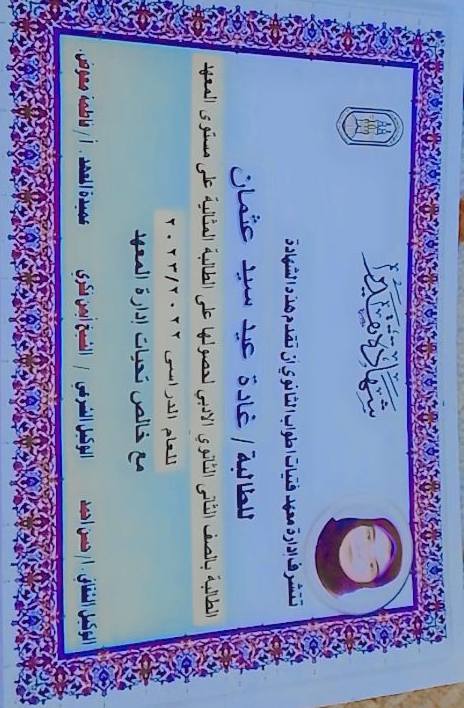 شهادة تقدير
تتشرف ادارة معهد فتيات اطواب الثانوي ان تقدم هذه الشهادة
للطالبة / غادة عيد سيد عثمان
الطالبة بالصف الثانى الثانوي الادبي لحصولها على الطالبة المثالية على مستوى المعهد
للعام الدراسى ٢٠٢٣/٢٠٢٢
مع خالص تحيات ادارة المعهد
الوكيل الثقافى أ/ الوكيل الشرعى / الشيخ ايمن عميدة المعهد أ/